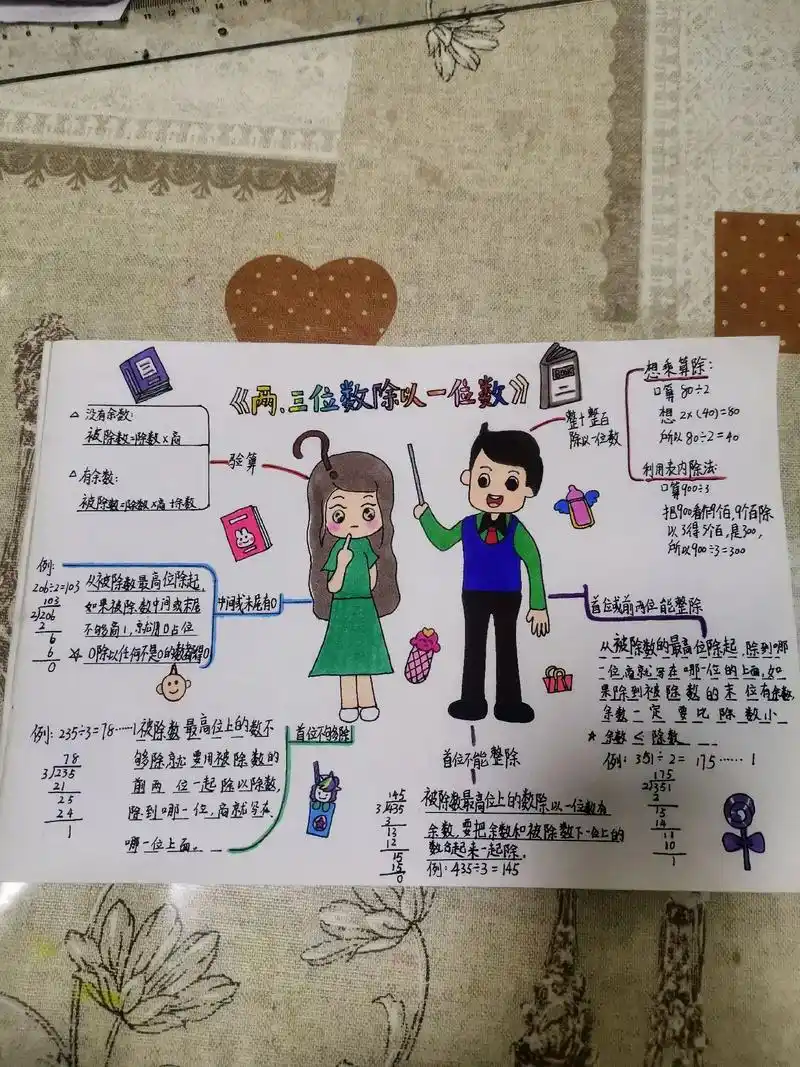 《两、三位数除以一位数》
△没有余数:
被除数=除数×商
△有余数:
被除数=除数×商+余数
验算
整十整百
除以一位数
想乘算除:
口算80÷2
想 2×(40)=80
所以80÷2=40
利用表内除法:
口算900÷3
把900看作9个百,9个百除
以3得3个百,是300,
所以900÷3=300
例:
206÷2=103
103
2√206
2
6
6
0
从被除数最高位除起,
如果被除数中间或末尾
不够商1,就用0占位
☆0除以任何不是0的数都得0
中间或末尾有0
首位或前两位能整除
从被除数的最高位除起,除到哪
一位商就写在哪一位的上面,如
果除到被除数的末位有余数,
余数一定要比除数小
★余数≤除数
例:351÷2=175……1
175
2√351
2
15
14
11
10
1
例:235÷3=78……1
78
3√235
21
25
24
1
被除数最高位上的数不
够除就要用被除数的
前两位一起除以除数,
除到哪一位,商就写在
哪一位上面。
首位不够除
首位不能整除
145
3√435
3
13
12
15
15
0
被除数最高位上的数除以一位数有
余数,要把余数和被除数下一位上的
数合起来一起除。
例:435÷3=145